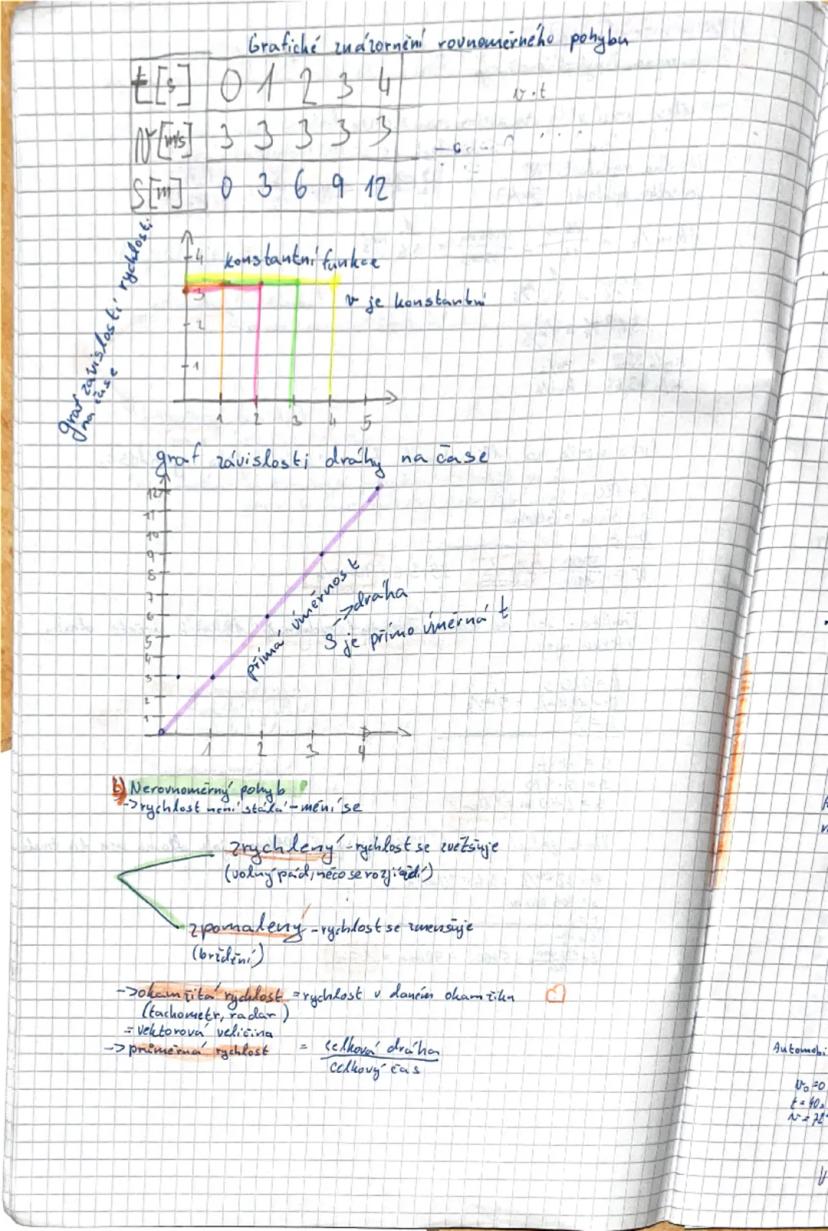 Grafické znázornění rovnoměrného pohybu
t[s] 0 1 2 3 4
v[m/s] 3 3 3 3 3
s[m] 0 3 6 9 12
v·t
graf závislosti rychlosti
na čase
4
3
2
1
konstantní funkce
v je konstantní
1 2 3 4 5
graf závislosti dráhy na čase
12
11
10
9
8
7
6
5
4
3
2
1
přímá úměrnost
->dráha
s je přímo úměrná t
1 2 3 4
b) Nerovnoměrný pohyb
->rychlost není stálá - mění se
zrychlený - rychlost se zvětšuje
(volný pád, něco se rozjíždí)
zpomalený - rychlost se zmenšuje
(brždění)
->okamžitá rychlost = rychlost v daném okamžiku
(tachometr, radar)
= vektorová veličina
->průměrná rychlost = celková dráha
celkový čas
Automobi
v₀=0
t=40s
v=72